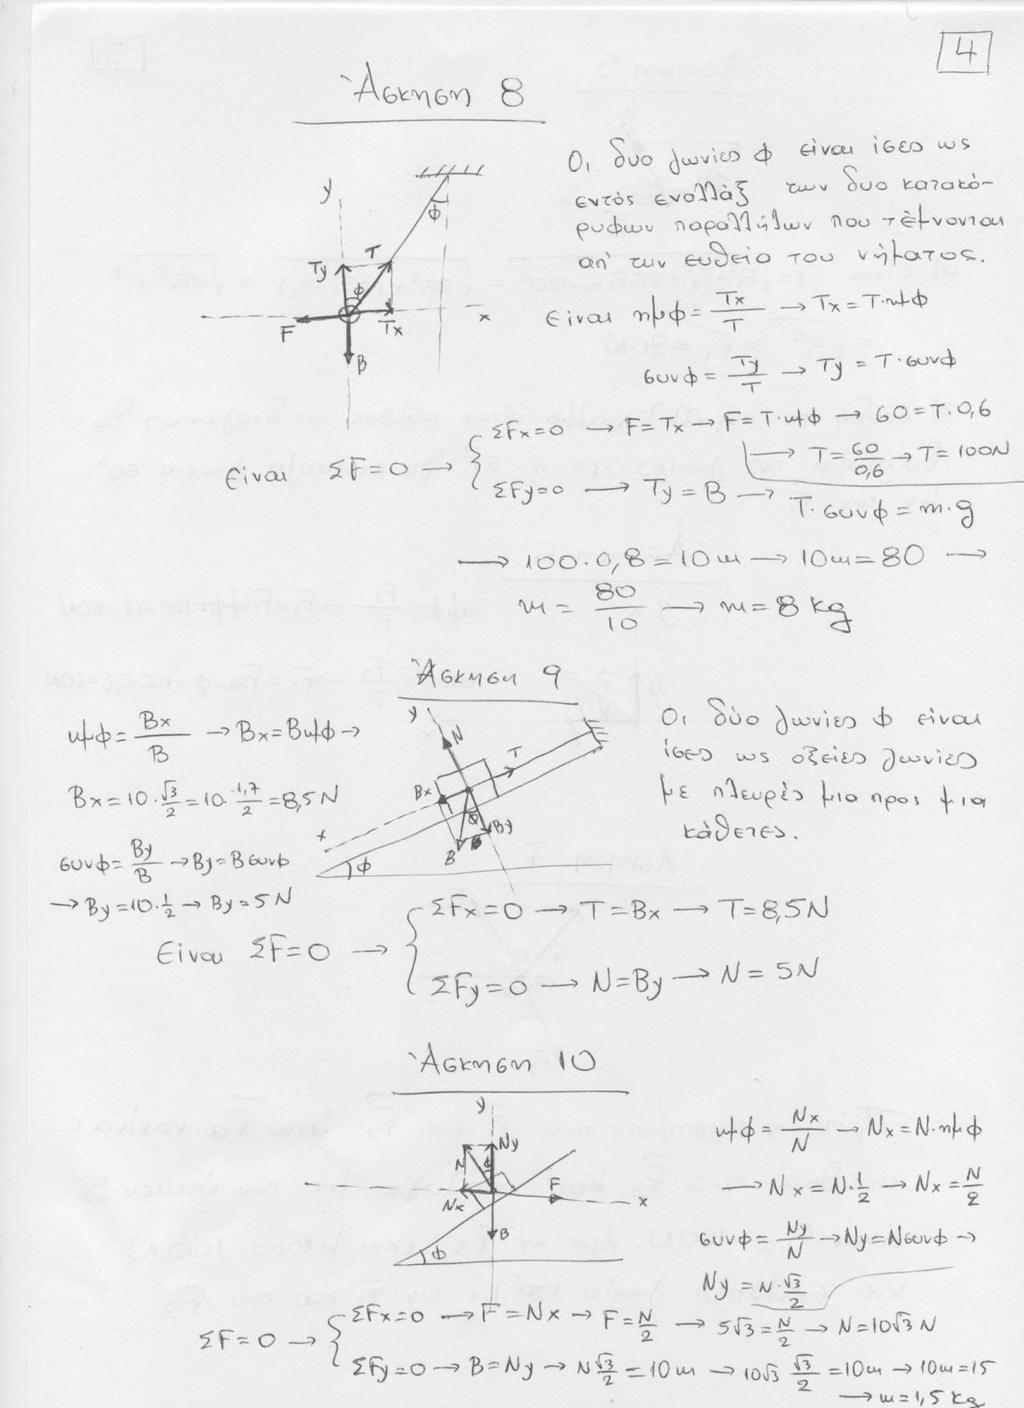 4
Άσκηση 8
Οι δυο γωνίες φ είναι ίσες ως
εντός εναλλάξ των δυο κατακό-
ρυφων παραλλήλων που τέμνονται
απ' την ευθεία του νήματος.
y
φ
T
Ty
φ
F
Tx
x
B
Είναι ημφ = Tx/T → Tx = T·ημφ
συνφ = Ty/T → Ty = T·συνφ
Είναι ΣF = 0 →
ΣFx = 0 → F = Tx → F = T·ημφ → 60 = T·0,6
→ T = 60/0,6 → T = 100N
ΣFy = 0 → Ty = B → T·συνφ = m·g
→ 100·0,8 = 10m → 10m = 80 →
m = 80/10 → m = 8 kg
Άσκηση 9
ημφ = Bx/B → Bx = Bημφ →
Bx = 10·√3/2 = 10·1,7/2 = 8,5N
συνφ = By/B → By = Bσυνφ
→ By = 10·1/2 → By = 5N
y
N
T
Bx
x
φ
By
B
φ
Οι δύο γωνίες φ είναι
ίσες ως οξείες γωνίες
με πλευρές μια προς μια
κάθετες.
Είναι ΣF = 0 →
ΣFx = 0 → T = Bx → T = 8,5N
ΣFy = 0 → N = By → N = 5N
Άσκηση 10
y
N
Ny
φ
Nx
F
x
B
φ
ημφ = Nx/N → Nx = N·ημφ
→ Nx = N·1/2 → Nx = N/2
συνφ = Ny/N → Ny = Nσυνφ →
Ny = N·√3/2
ΣF = 0 →
ΣFx = 0 → F = Nx → F = N/2 → 5√3 = N/2 → N = 10√3 N
ΣFy = 0 → B = Ny → N√3/2 = 10m → 10√3 √3/2 = 10m → 10m = 15
→ m = 1,5 kg